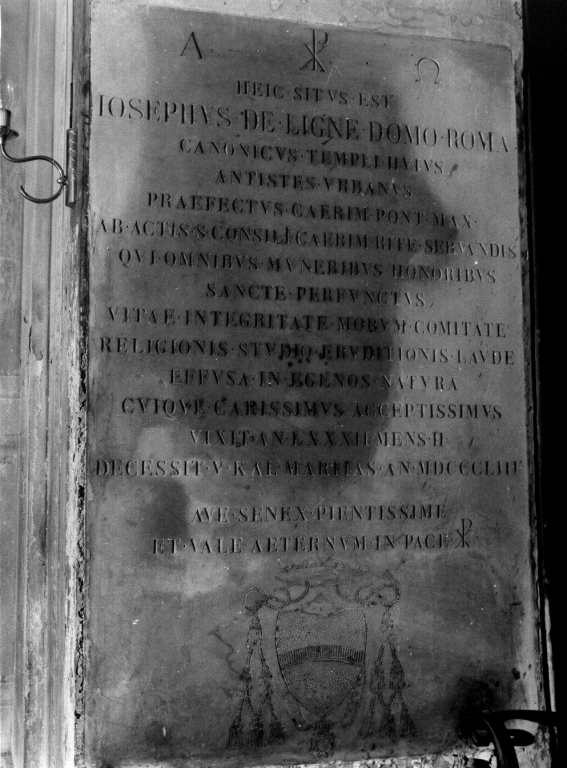 Α ☧ Ω
HEIC·SITVS·EST
IOSEPHVS·DE·LIGNE·DOMO·ROMA
CANONICVS·TEMPLI·HVIVS
ANTISTES·VRBANVS
PRAEFECTVS·CAERIM·PONT·MAX·
AB·ACTIS·S·CONSILI·CAERIM·RITE·SERVANDIS
QVI·OMNIBVS·MVNERIBVS·HONORIBVS
SANCTE·PERFVNCTVS
VITAE·INTEGRITATE·MORVM·COMITATE
RELIGIONIS·STVDIO·ERVDITIONIS·LAVDE
EFFVSA·IN·EGENOS·NATVRA
CVIQVE·CARISSIMVS·ACCEPTISSIMVS
VIXIT·AN·LXXXII·MENS·II
DECESSIT·V·KAL·MARTIAS·AN·MDCCCLIII
AVE·SENEX·PIENTISSIME
ET·VALE·AETERNVM·IN·PACE ☧